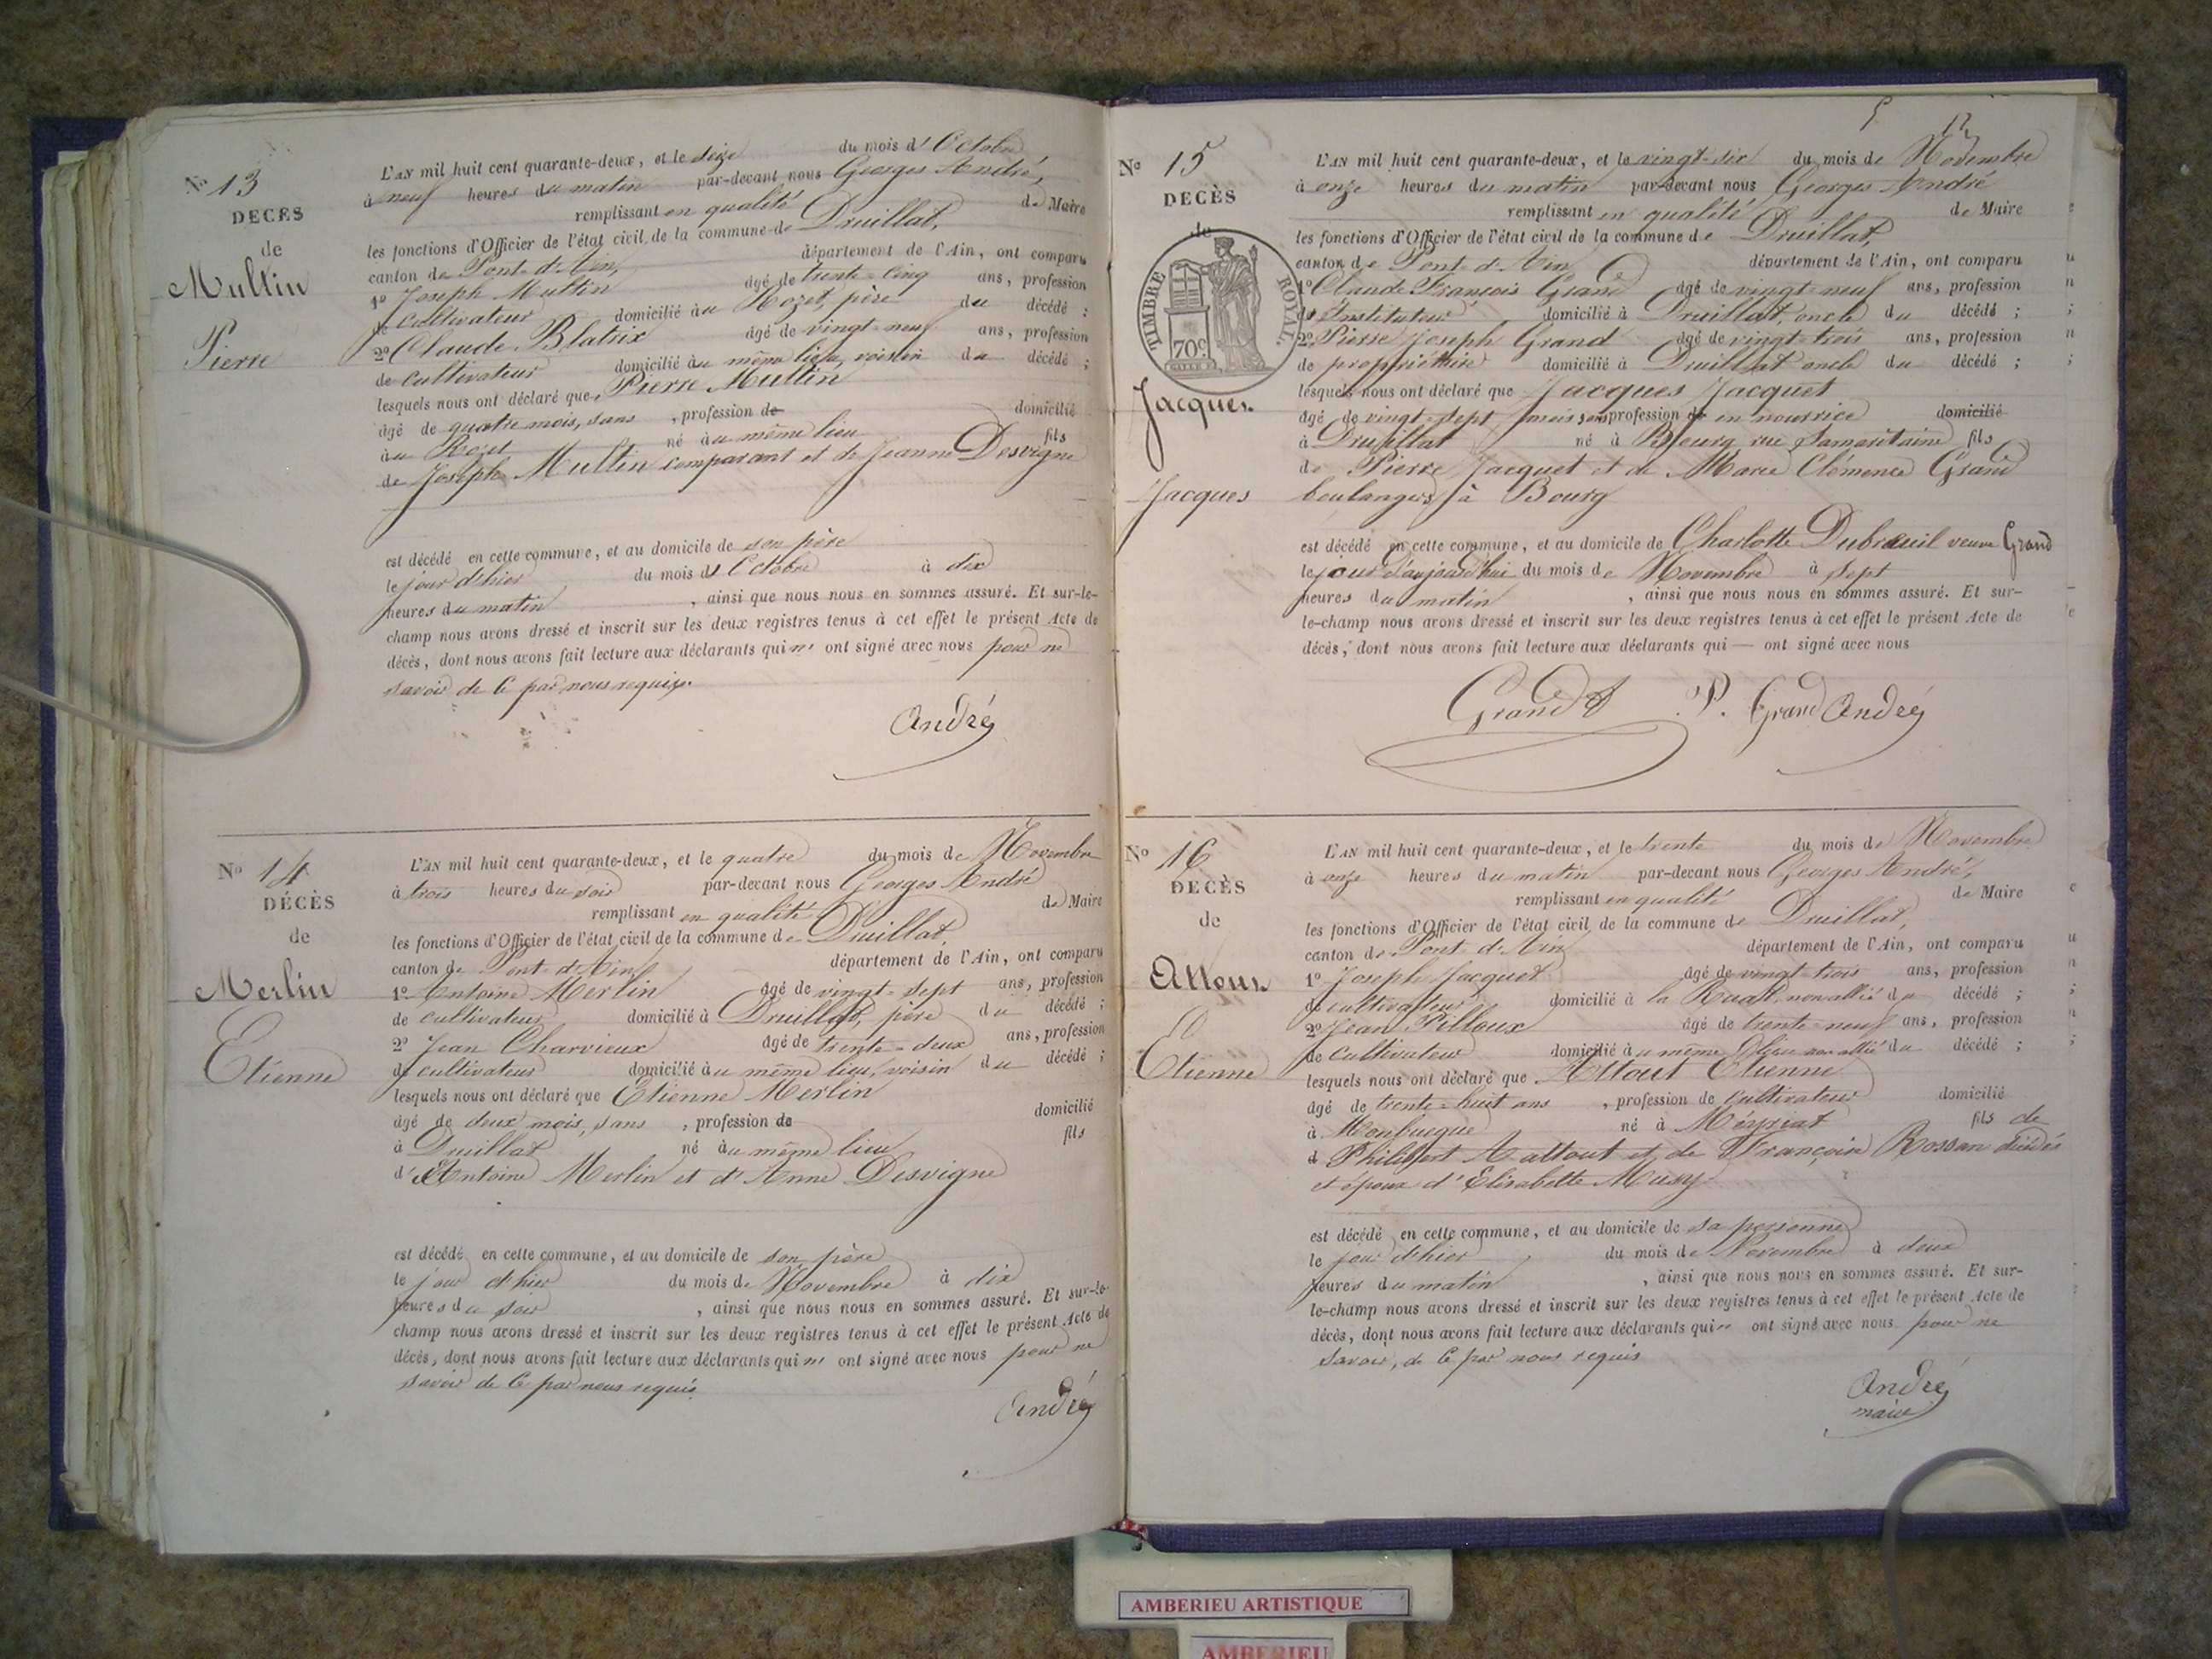 N° 13
DECES
de
Multin
Pierre
L'AN mil huit cent quarante-deux, et le seize du mois d'Octobre
à neuf heures du matin par-devant nous Georges André,
remplissant en qualité de Maire
les fonctions d'Officier de l'état civil de la commune de Druillat,
canton de Pont-d'Ain, département de l'Ain, ont comparu
1° Joseph Multin âgé de trente-cinq ans, profession
de cultivateur domicilié au Rozet, père du décédé ;
2° Claude Blatrix âgé de vingt-neuf ans, profession
de cultivateur domicilié au même lieu, voisin du décédé ;
lesquels nous ont déclaré que Pierre Multin
âgé de quatre mois, sans , profession de domicilié
au Rozet né au même lieu fils
de Joseph Multin comparant et de Jeanne Desvigne
est décédé en cette commune, et au domicile de son père
le jour d'hier du mois d'Octobre à dix
heures du matin , ainsi que nous nous en sommes assuré. Et sur-le-
champ nous avons dressé et inscrit sur les deux registres tenus à cet effet le présent Acte de
décès, dont nous avons fait lecture aux déclarants qui n' ont signé avec nous pour ne
savoir de ce par nous requis.
André
N° 14
DÉCÈS
de
Merlin
Etienne
L'AN mil huit cent quarante-deux, et le quatre du mois de Novembre
à trois heures du soir par-devant nous Georges André
remplissant en qualité de Maire
les fonctions d'Officier de l'état civil de la commune de Druillat,
canton de Pont-d'Ain département de l'Ain, ont comparu
1° Antoine Merlin âgé de vingt-sept ans, profession
de cultivateur domicilié à Druillat, père du décédé ;
2° Jean Charvieux âgé de trente-deux ans, profession
de cultivateur domicilié au même lieu, voisin du décédé ;
lesquels nous ont déclaré que Etienne Merlin
âgé de deux mois, sans , profession de domicilié
à Druillat né au même lieu fils
d'Antoine Merlin et d'Anne Desvigne
est décédé en cette commune, et au domicile de son père
le jour d'hier du mois de Novembre à dix
heures du soir , ainsi que nous nous en sommes assuré. Et sur-le-
champ nous avons dressé et inscrit sur les deux registres tenus à cet effet le présent Acte de
décès, dont nous avons fait lecture aux déclarants qui n' ont signé avec nous pour ne
savoir de ce par nous requis
André
N° 15
DÉCÈS
de
TIMBRE ROYAL
70c
Jacques
Jacques
L'AN mil huit cent quarante-deux, et le vingt-six du mois de Novembre
à onze heures du matin par-devant nous Georges André
remplissant en qualité de Maire
les fonctions d'Officier de l'état civil de la commune de Druillat,
canton de Pont-d'Ain département de l'Ain, ont comparu
1° Claude François Grand âgé de vingt-neuf ans, profession
de Instituteur domicilié à Druillat, oncle du décédé ;
2° Pierre Joseph Grand âgé de vingt-trois ans, profession
de propriétaire domicilié à Druillat oncle du décédé ;
lesquels nous ont déclaré que Jacques Jacquet
âgé de vingt-sept mois sans profession de en nourrice domicilié
à Druillat né à Bourg rue Samaritaine fils
de Pierre Jacquet et de Marie Clémence Grand
boulangers à Bourg
est décédé en cette commune, et au domicile de Charlotte Dubreuil veuve Grand
le jour d'aujourd'hui du mois de Novembre à sept
heures du matin , ainsi que nous nous en sommes assuré. Et sur-
le-champ nous avons dressé et inscrit sur les deux registres tenus à cet effet le présent Acte de
décès, dont nous avons fait lecture aux déclarants qui — ont signé avec nous
Grand P. Grand André
N° 16
DÉCÈS
de
Etienne
L'AN mil huit cent quarante-deux, et le trente du mois de Novembre
à onze heures du matin par-devant nous Georges André,
remplissant en qualité de Maire
les fonctions d'Officier de l'état civil de la commune de Druillat,
canton de Pont-d'Ain département de l'Ain, ont comparu
1° Joseph Jacquet âgé de vingt-trois ans, profession
de cultivateur domicilié à la Ruat, non allié du décédé ;
2° Jean Pilloux âgé de trente-neuf ans, profession
de cultivateur domicilié au même lieu non allié du décédé ;
lesquels nous ont déclaré que Attout Etienne
âgé de trente-huit ans , profession de cultivateur domicilié
à né à Meyriat fils de
Philibert Attout et de Françoise Rossan décédés
et époux d'Elisabette Musy
est décédé en cette commune, et au domicile de sa personne
le jour d'hier du mois de Novembre à deux
heures du matin , ainsi que nous nous en sommes assuré. Et sur-
le-champ nous avons dressé et inscrit sur les deux registres tenus à cet effet le présent Acte de
décès, dont nous avons fait lecture aux déclarants qui n' ont signé avec nous pour ne
savoir, de ce par nous requis
André
maire
AMBERIEU ARTISTIQUE
AMBERIEU